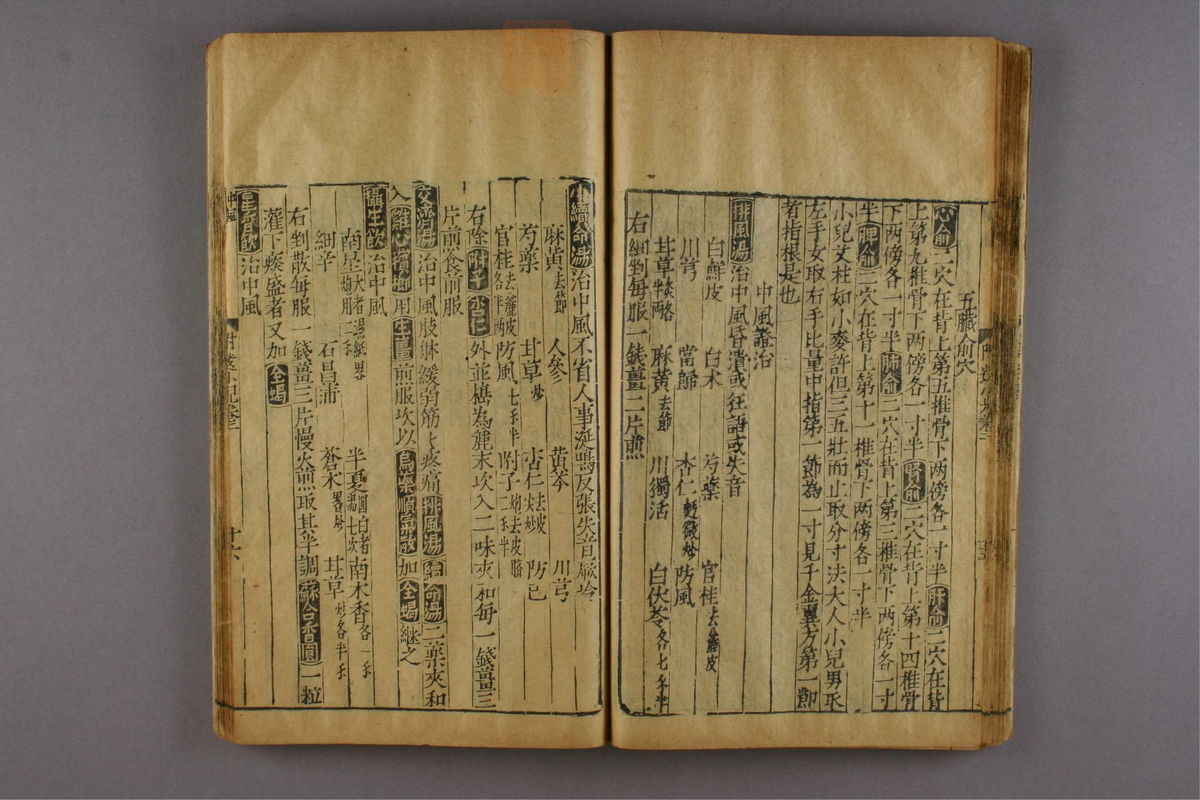 五臟俞穴
心俞二穴在背上第五推骨下两傍各一寸半肝俞二穴在背
上第九推骨下两傍各一寸半腎俞二穴在背上第十四椎骨
下两傍各一寸半肺俞二穴在背上第三椎骨下两傍各一寸
半脾俞二穴在背上第十一椎骨下两傍各一寸半
小兒艾炷如小麥許但三五壯而止取分寸法大人小兒男取
左手女取右手比量中指第一節為一寸見千金翼方第一節
者指根是也
中風證治
排風湯治中風昏潰或狂語或失音
白鮮皮 白术 芍藥 官桂去麤皮
川芎 當歸 杏仁麩炒 防風
甘草半两 麻黃去節 川獨活 白伏苓各七夕半
右細剉每服一錢薑二片煎
小續命湯治中風不省人事涎鳴反張失音厥冷
麻黃去節 人參 黃芩 川芎
芍藥 甘草炒 杏仁去皮尖炒 防己
官桂去麤皮各半两 防風七夕半 附子炮去皮臍二夕半
右除附子杏仁外並擣為麄末炊入二味夾和每一錢薑三
片煎食前服
交濟湯治中風肢躰緩弱筋七疼痛排風湯續命湯二藥夾和
入用生薑煎服次以烏藥順氣散加全蝎継之
攝生飲治中風
南星大者濕紙畧炮用二夕 半夏圓白者湯七次 南木香各一夕
細辛 石昌蒲 蒼术畧炒 甘草炒各半夕
右剉散每服一錢薑三片慢火煎取其半調蘇合香圓一粒
灌下痰盛者又加全蝎
星香飲治中風
十六